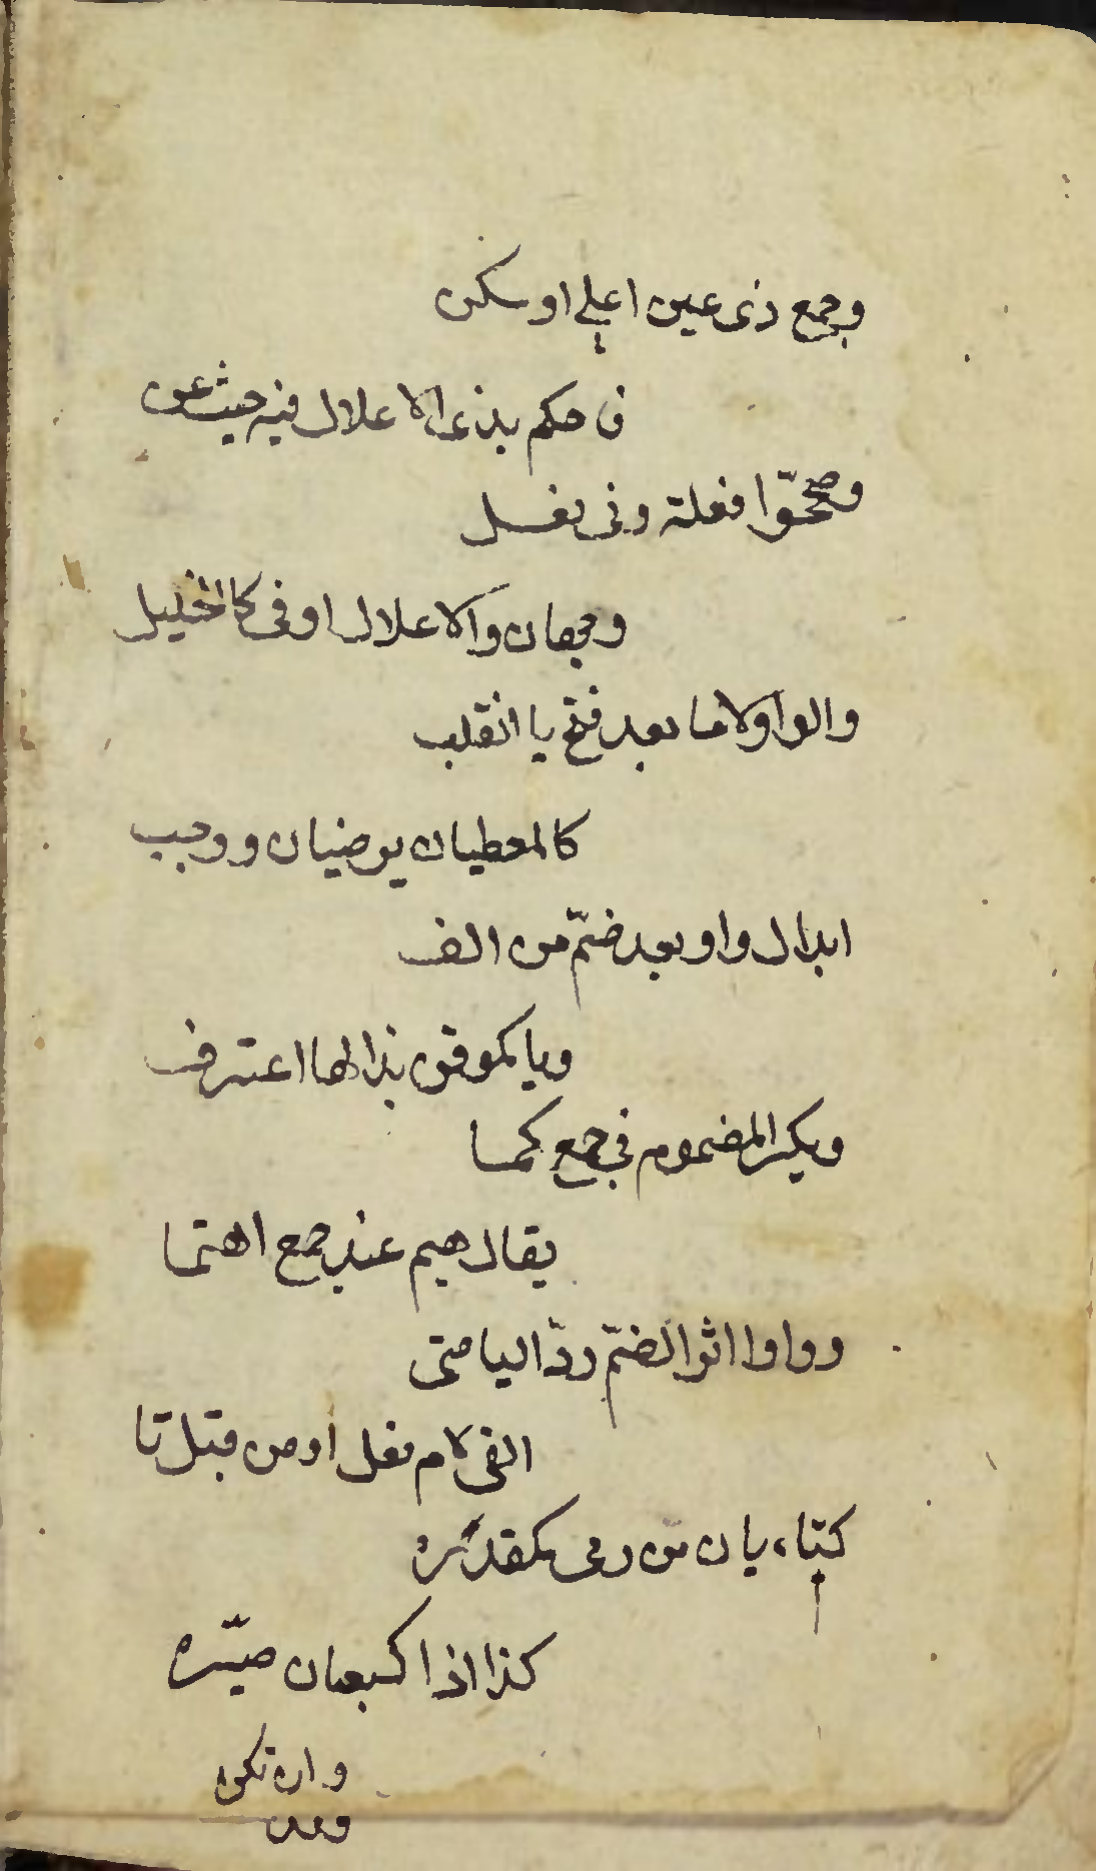 وجمع ذى عين اعلّ او سكن
فاحكم بذى الاعلال فيه حيث عن
وصححّوا فعلة وفى فعل
وجهان والاعلال اوفى كالحيل
والواو لاما بعد فتح يا انقلب
كالمعطيان يرضيان ووجب
ابدال واو بعد ضمّ من الف
ويا كموقن بذا لها اعترف
ويكسر المضموم فى جمع كما
يقال هيم عند جمع اهيما
وواوا اثر الضمّ ردّ اليا متى
الفى لام فعل او من قبل تا
كتاء بان من رمى كمقدره
كذا اذا كسبعان صيّره
وان تكن